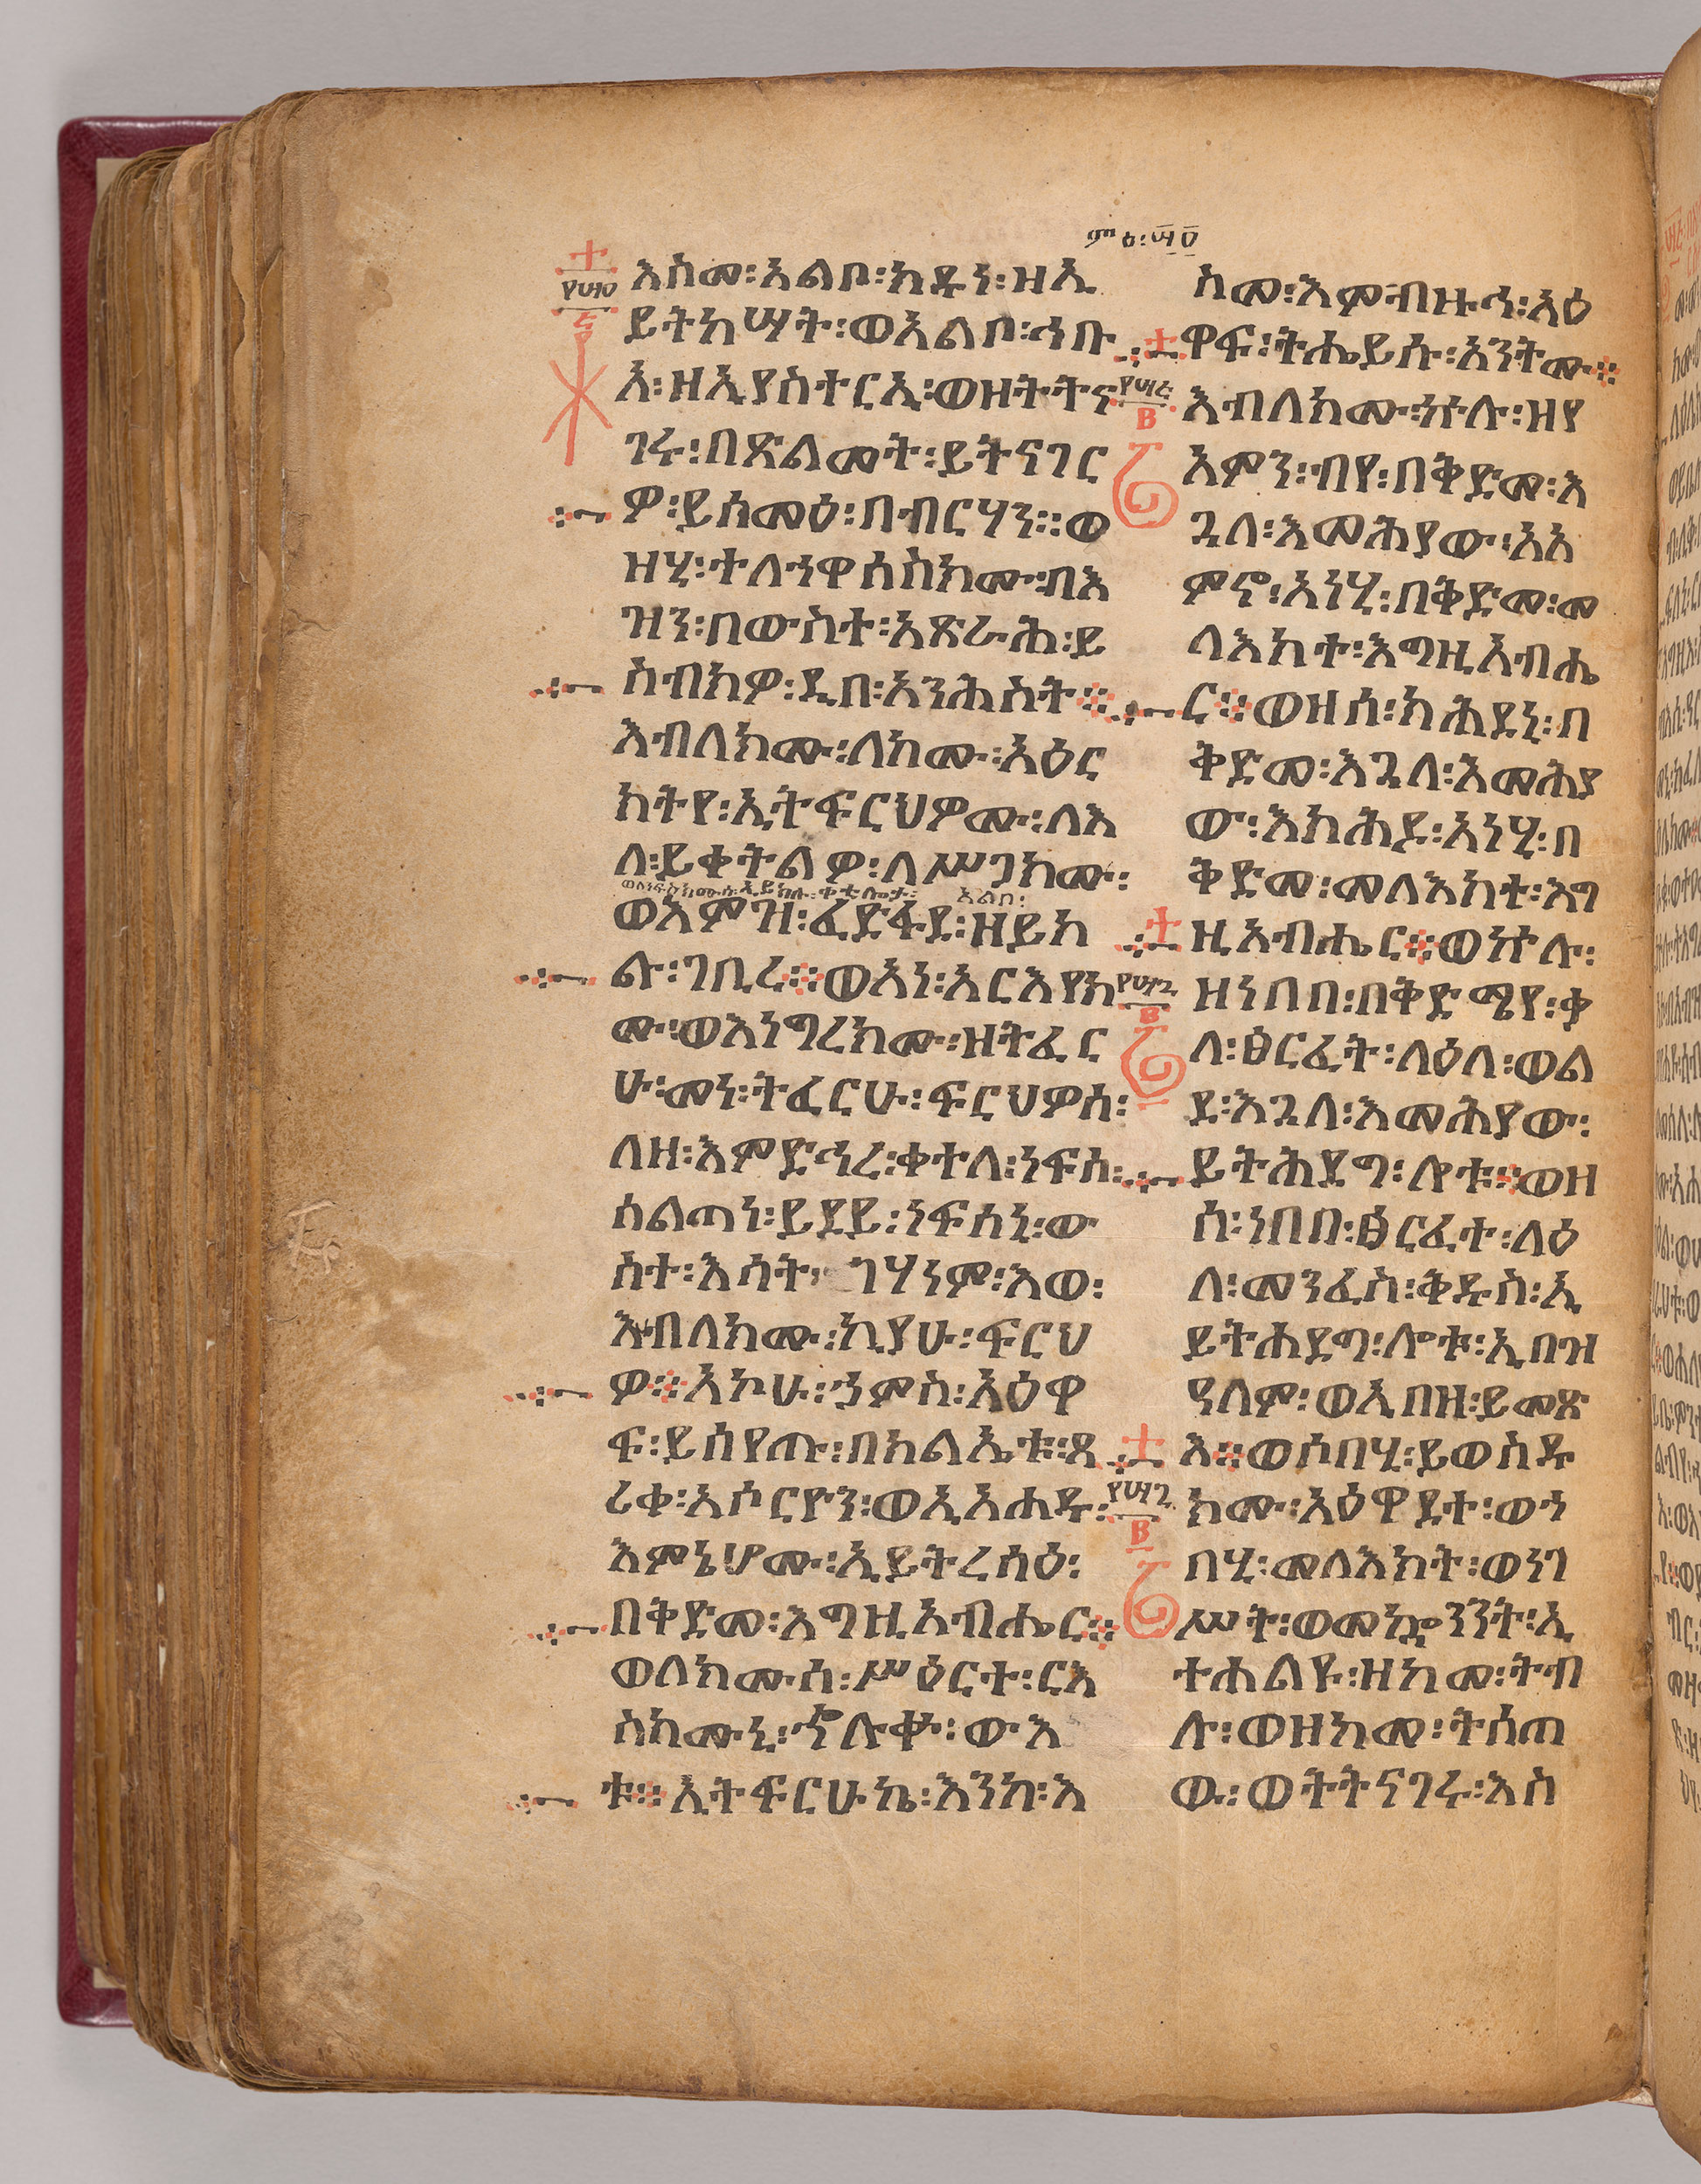 ምዕ፡፶፬
እስመ፡አልቦ፡ክዱን፡ዘኢ
ይትከሣት፡ወአልቦ፡ኅቡ
እ፡ዘኢያስተርኢ፡ወዘትትና
ገሩ፡በጽልመት፡ይትናገር
ዎ፡ይሰመዕ፡በብርሃን፡፡ወ
ዝሂ፡ተለኅዋሰስክሙ፡በእ
ዝን፡በውስተ፡አጽራሕ፡ይ
ስብክዎ፡ዲበ፡አንሕስት፨
እብለክሙ፡ለክሙ፡አዕር
ክትየ፡ኢትፍርህዎሙ፡ለእ
ለ፡ይቀትልዎ፡ለሥጋክሙ፡
ወለነፍስክሙሰ፡ኢይክሉ፡ቀቲሎታ፡ አልቦ፡
ወእምዝ፡ፈድፋደ፡ዘይክ
ሉ፡ገቢረ፨ወአነ፡አርእየክ
ሙ፡ወእነግረክሙ፡ዘትፈር
ሁ፡መነ፡ትፈርሁ፡ፍርህዎሰ፡
ለዘ፡እምድኅረ፡ቀተለ፡ነፍሰ፡
ሰልጣነ፡ይደይ፡ነፍሰኒ፡ው
ስተ፡እሳት፡ገሃነም፡እወ፡
እብለክሙ፡ኪያሁ፡ፍርህ
ዎ፨አኮሁ፡ኃምስ፡አዕዋ
ፍ፡ይሰየጡ፡በክልኤቱ፡ጸ
ሪቀ፡አሶርዮን፡ወኢአሐዱ፡
እምኔሆሙ፡ኢይትረሰዕ፡
በቅድመ፡እግዚአብሔር፨
ወለክሙሰ፡ሥዕርተ፡ርእ
ስክሙኒ፡ኍሉቍ፡ውእ
ቱ፨ኢትፍርሁኬ፡እንከ፡እ
ስመ፡እምብዙኅ፡አዕ
ዋፍ፡ትሔይሱ፡አንትሙ፨
እብለክሙ፡ኵሉ፡ዘየ
አምን፡ብየ፡በቅድመ፡እ
ጓለ፡እመሕያው፡አአ
ምኖ፡አነሂ፡በቅድመ፡መ
ላእክተ፡እግዚአብሔ
ር፨ወዘሰ፡ክሕደኒ፡በ
ቅድመ፡እጓለ፡እመሕያ
ው፡እክሕዶ፡አነሂ፡በ
ቅድመ፡መለእክተ፡እግ
ዚአብሔር፨ወኵሉ፡
ዘነበበ፡በቅድሜየ፡ቃ
ለ፡ፅርፈት፡ለዕለ፡ወል
ደ፡እጓለ፡እመሕያው፡
ይትሕደግ፡ሎቱ፨ወዘ
ሰ፡ነበበ፡ፅርፈተ፡ለዕ
ለ፡መንፈስ፡ቅዱስ፡ኢ
ይትሕደግ፡ሎቱ፡ኢበዝ
ዓለም፡ወኢበዘ፡ይመጽ
እ፨ወሶበሂ፡ይወስዱ
ክሙ፡አዕዋደተ፡ወኀ
በሂ፡መለእክት፡ወነገ
ሥት፡ወመኳንንት፡ኢ
ተሐልዩ፡ዘከመ፡ትብ
ሉ፡ወዘከመ፡ትሰጠ
ው፡ወትትናገሩ፡እስ